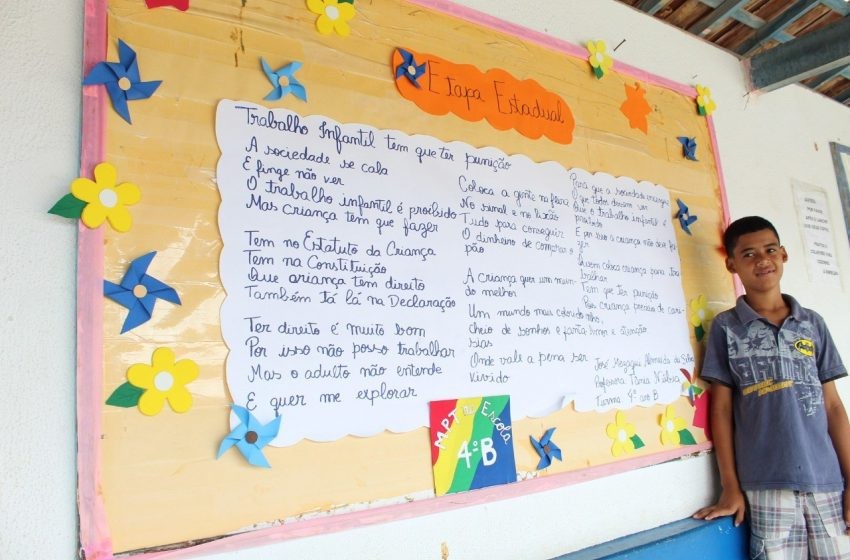 Etapa Estadual
Trabalho Infantil tem que ter punição
A sociedade se cala
E finge não ver
O trabalho infantil é proibido
Mas criança tem que fazer
Tem no Estatuto da Criança
Tem na Constituição
Que criança tem direito
Também tá lá na Declaração
Ter direito é muito bom
Por isso não posso trabalhar
Mas o adulto não entende
E quer me explorar
Coloca a gente na feira
No sinal e no lixão
Tudo para conseguir
O dinheiro de comprar o
pão
A criança quer um mun
do melhor
Um mundo meu colorido
cheio de sonhos e fanta
sias
Onde vale a pena ser
vivido
Para que a sociedade enxergue
E que todos devem ver
Que o trabalho infantil é
proibido
E por isso a criança não deve fa
zer
Quem coloca criança para tra
balhar
Tem que ter punição
Pois criança precisa de cari
nho,
amor e atenção
José Almeida da Silva
Professora Tânia
Turma 4º ano B
MPT na Escola
4º B